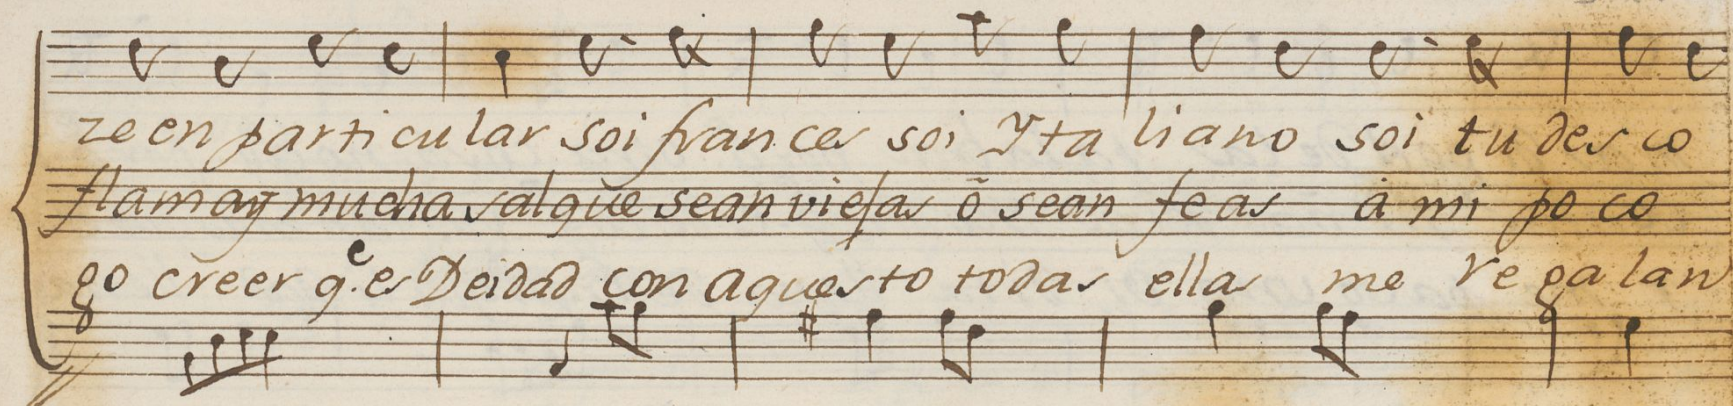 ze en particular soi frances soi Ytaliano soi tudesco
flamay mucha sal que sean viejas ó sean feas á mi poco
go creer q.e es Deidad con aquesto todas ellas me regalan